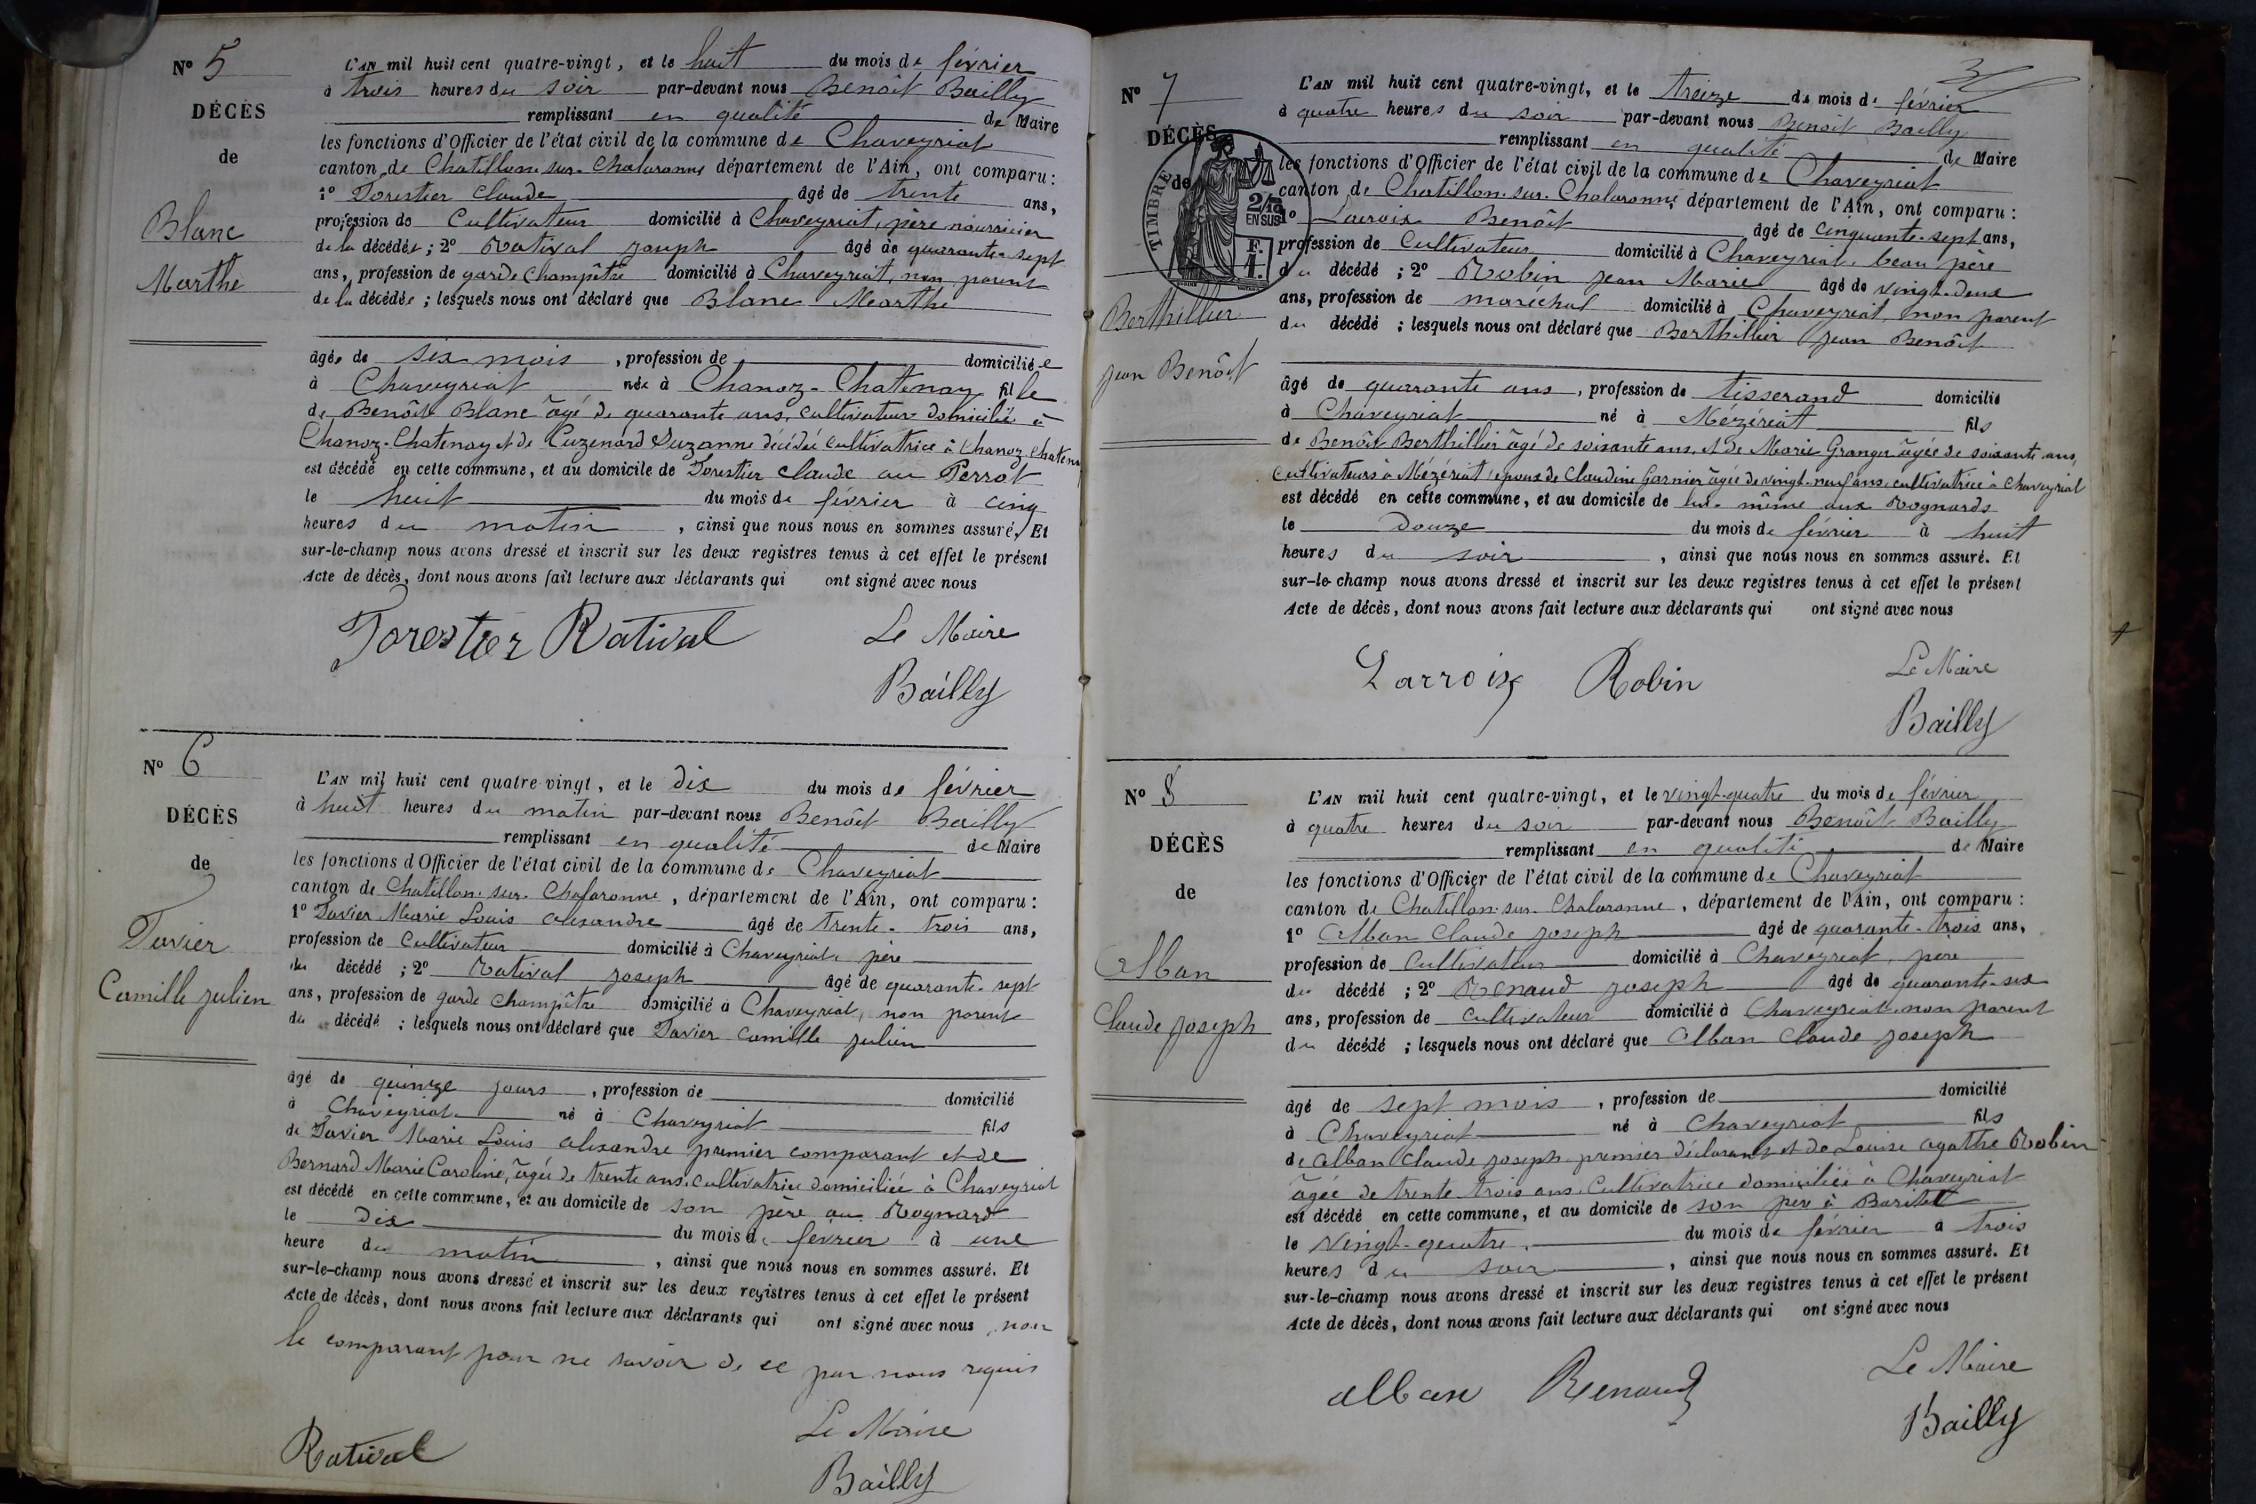 N° 5
DÉCÈS
de
Blanc
Marthe
L'AN mil huit cent quatre-vingt, et le huit du mois de février
à trois heures du soir par-devant nous Benoît Bailly
remplissant en qualité de Maire
les fonctions d'Officier de l'état civil de la commune de Chaveyriat
canton de Chatillon-sur-Chalaronne département de l'Ain, ont comparu :
1° Forestier Claude âgé de trente ans,
profession de Cultivateur domicilié à Chaveyriat, père nourricier
de la décédée ; 2° Ratival Joseph âgé de quarante-sept
ans, profession de garde champêtre domicilié à Chaveyriat, non parent
de la décédée ; lesquels nous ont déclaré que Blanc Marthe
âgée de six mois , profession de domiciliée
à Chaveyriat née à Chanoz-Chatenay fille
de Benoît Blanc âgé de quarante ans, cultivateur domicilié à
Chanoz-Chatenay et de Cuzenard Suzanne décédée cultivatrice à Chanoz Chatenay
est décédé en cette commune, et au domicile de Forestier Claude au Perrot
le huit du mois de février à cinq
heures du matin , ainsi que nous nous en sommes assuré. Et
sur-le-champ nous avons dressé et inscrit sur les deux registres tenus à cet effet le présent
Acte de décès, dont nous avons fait lecture aux déclarants qui ont signé avec nous
Forestier Ratival Le Maire
Bailly
N° 6
DÉCÈS
de
Favier
Camille Julien
L'AN mil huit cent quatre-vingt, et le dix du mois de février
à huit heures du matin par-devant nous Benoît Bailly
remplissant en qualité de Maire
les fonctions d'Officier de l'état civil de la commune de Chaveyriat
canton de Chatillon-sur-Chalaronne, département de l'Ain, ont comparu :
1° Favier Marie Louis Alexandre âgé de trente-trois ans,
profession de Cultivateur domicilié à Chaveyriat, père
du décédé ; 2° Ratival Joseph âgé de quarante-sept
ans, profession de garde champêtre domicilié à Chaveyriat, non parent
du décédé ; lesquels nous ont déclaré que Favier Camille Julien
âgé de quinze jours , profession de domicilié
à Chaveyriat né à Chaveyriat fils
de Favier Marie Louis Alexandre premier comparant et de
Bernard Marie Caroline, âgée de trente ans, cultivatrice domiciliée à Chaveyriat
est décédé en cette commune, et au domicile de son père au Rognard
le dix du mois de février à une
heure du matin , ainsi que nous nous en sommes assuré. Et
sur-le-champ nous avons dressé et inscrit sur les deux registres tenus à cet effet le présent
Acte de décès, dont nous avons fait lecture aux déclarants qui ont signé avec nous, non
le comparant pour ne savoir de ce par nous requis
Ratival Le Maire
Bailly
3
N° 7
DÉCÈS
de
TIMBRE
2/10
EN SUS
F.
1.
Berthillier
Jean Benoît
L'AN mil huit cent quatre-vingt, et le treize du mois de février
à quatre heures du soir par-devant nous Benoît Bailly
remplissant en qualité de Maire
les fonctions d'Officier de l'état civil de la commune de Chaveyriat
canton de Chatillon-sur-Chalaronne, département de l'Ain, ont comparu :
1° Lacroix Benoît âgé de cinquante-sept ans,
profession de Cultivateur domicilié à Chaveyriat, beau père
du décédé ; 2° Robin Jean Marie âgé de vingt-deux
ans, profession de maréchal domicilié à Chaveyriat, non parent
du décédé ; lesquels nous ont déclaré que Berthillier Jean Benoît
âgé de quarante ans , profession de tisserand domicilié
à Chaveyriat né à Mézériat fils
de Benoît Berthillier âgé de soixante ans, et de Marie Granger âgée de soixante ans,
Cultivateurs à Mézériat, époux de Claudine Garnier âgée de vingt-neuf ans, cultivatrice à Chaveyriat
est décédé en cette commune, et au domicile de lui-même aux Rognards
le Douze du mois de février à huit
heures du soir , ainsi que nous nous en sommes assuré. Et
sur-le-champ nous avons dressé et inscrit sur les deux registres tenus à cet effet le présent
Acte de décès, dont nous avons fait lecture aux déclarants qui ont signé avec nous
Larroix Robin Le Maire
Bailly
N° 8
DÉCÈS
de
Alban
Claude Joseph
L'AN mil huit cent quatre-vingt, et le vingt-quatre du mois de février
à quatre heures du soir par-devant nous Benoît Bailly
remplissant en qualité de Maire
les fonctions d'Officier de l'état civil de la commune de Chaveyriat
canton de Chatillon-sur-Chalaronne, département de l'Ain, ont comparu :
1° Alban Claude Joseph âgé de quarante-trois ans,
profession de Cultivateur domicilié à Chaveyriat, père
du décédé ; 2° Renaud Joseph âgé de quarante-six
ans, profession de Cultivateur domicilié à Chaveyriat, non parent
du décédé ; lesquels nous ont déclaré que Alban Claude Joseph
âgé de sept mois , profession de domicilié
à Chaveyriat né à Chaveyriat fils
de Alban Claude Joseph premier déclarant et de Louise Agathe Robin
âgée de trente trois ans, Cultivatrice domiciliée à Chaveyriat
est décédé en cette commune, et au domicile de son père à
le vingt-quatre, du mois de février à trois
heures du soir , ainsi que nous nous en sommes assuré. Et
sur-le-champ nous avons dressé et inscrit sur les deux registres tenus à cet effet le présent
Acte de décès, dont nous avons fait lecture aux déclarants qui ont signé avec nous
alban Renaud Le Maire
Bailly